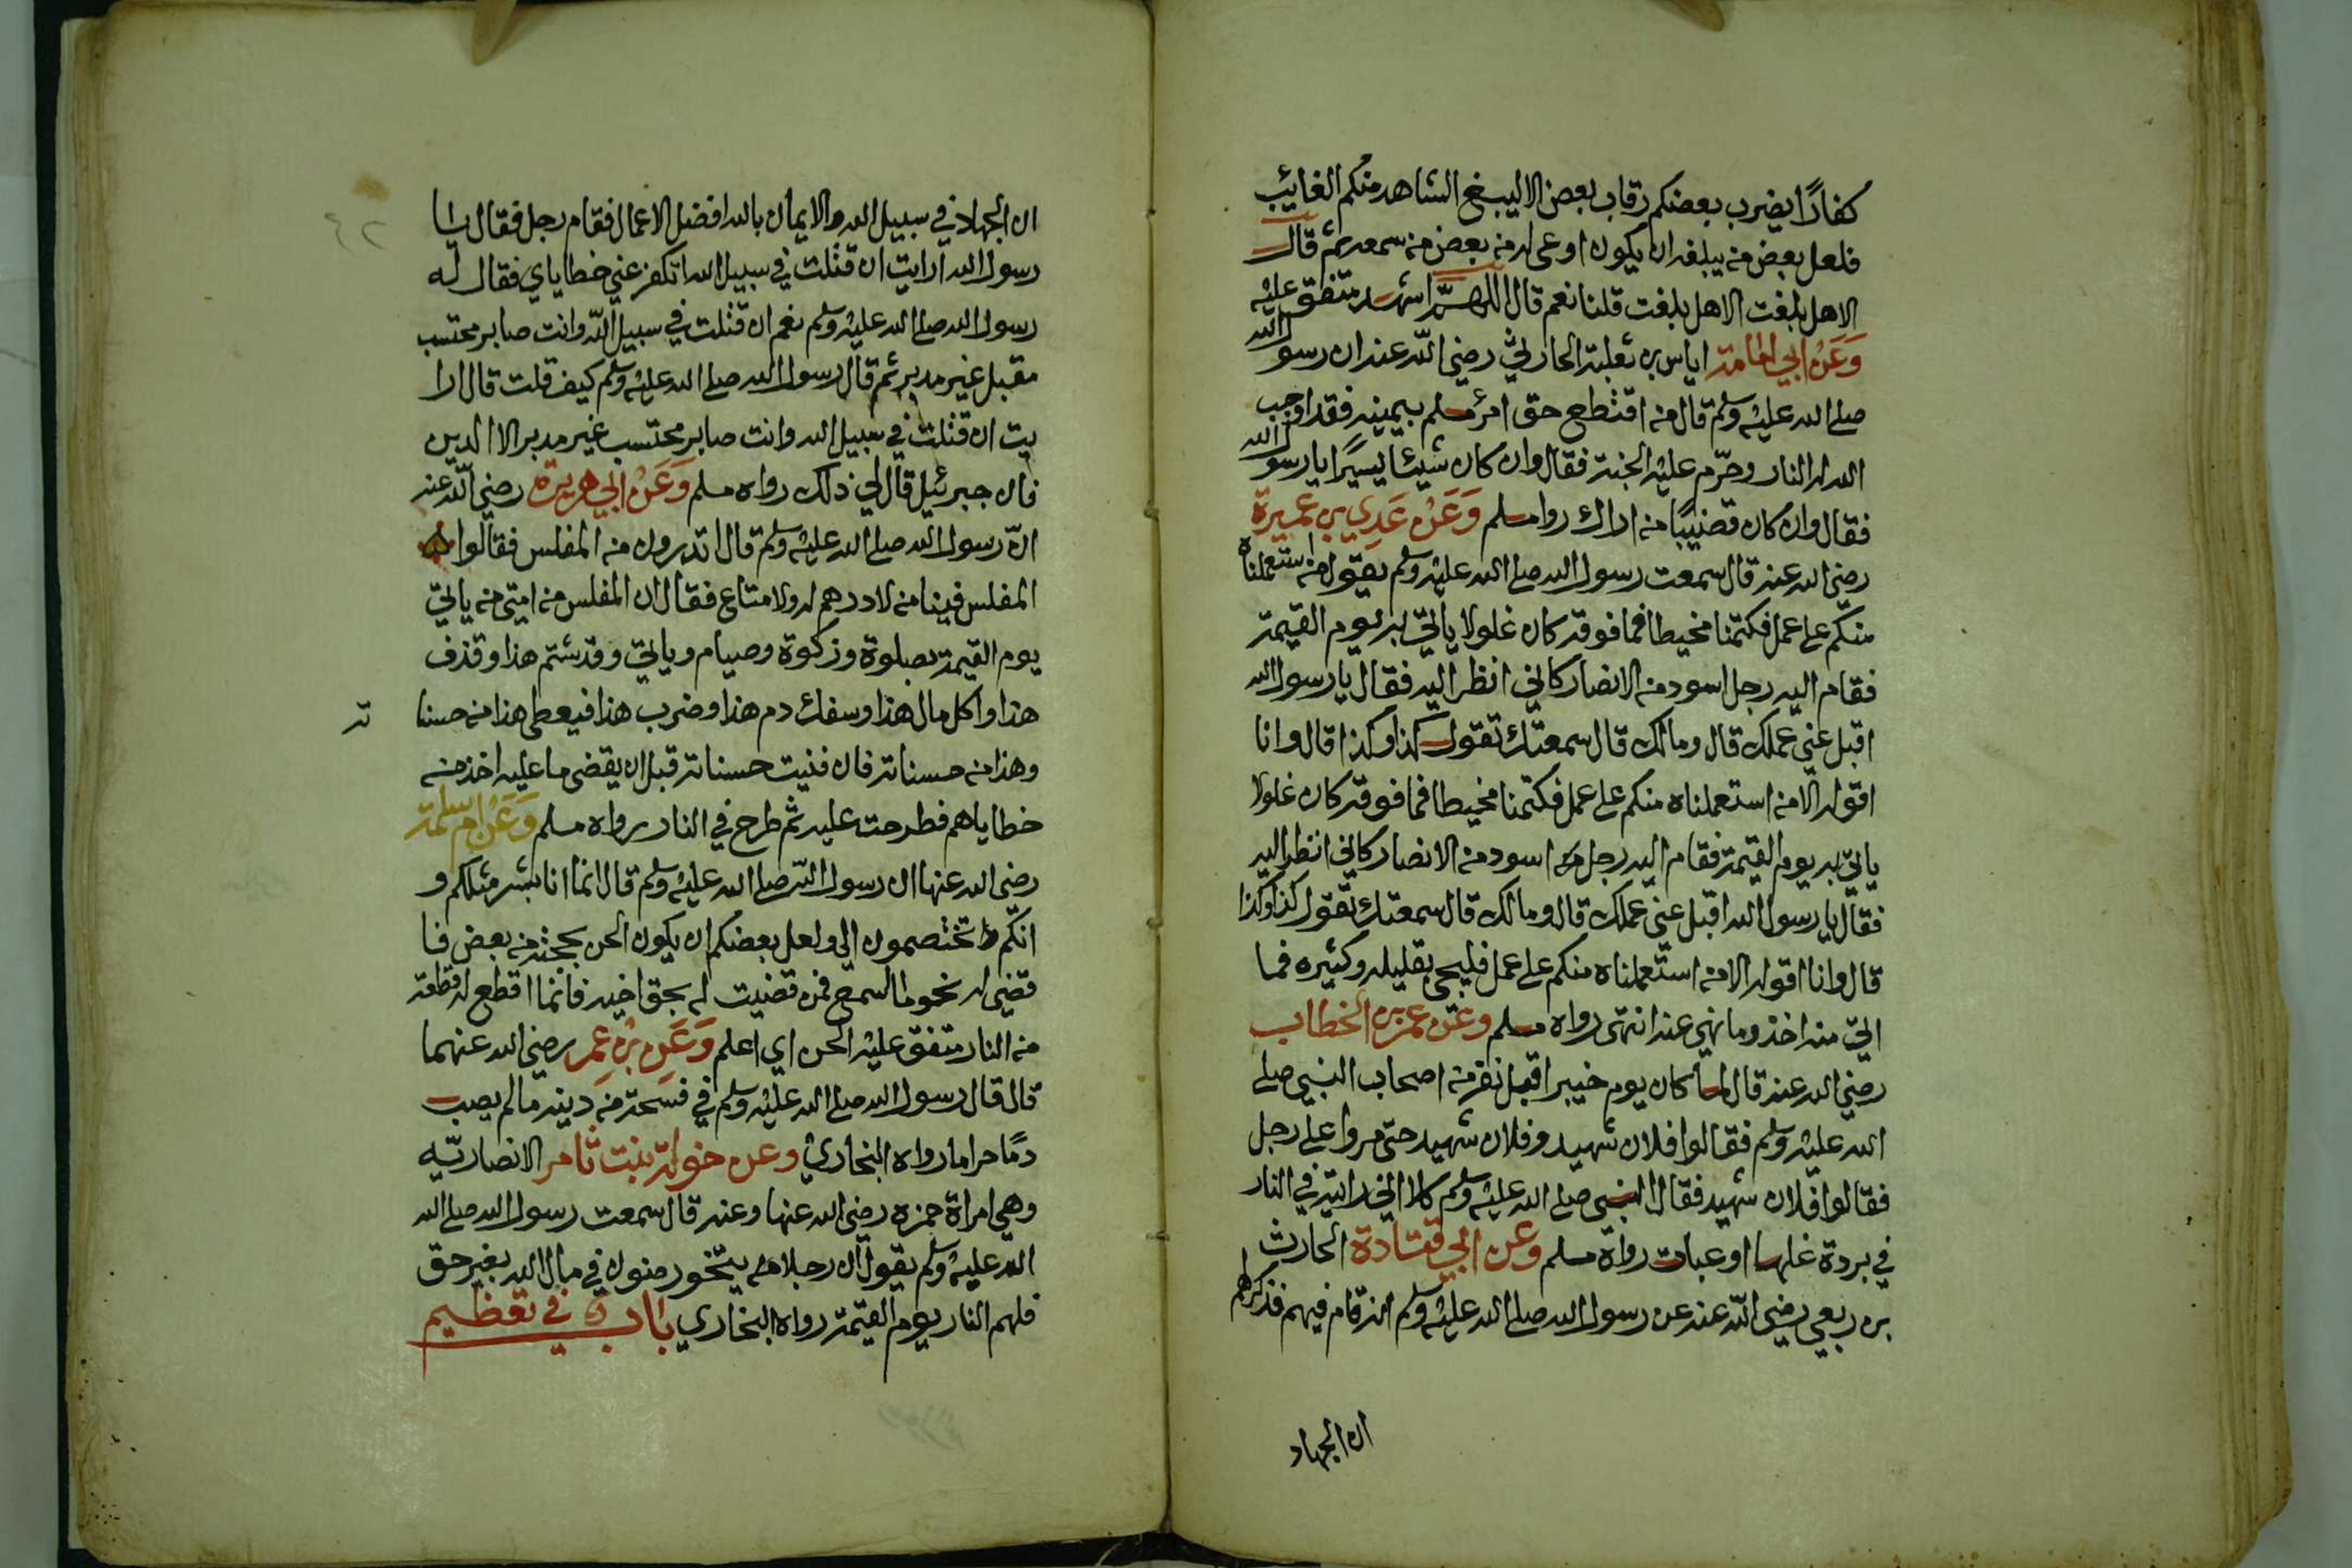 كفارًا يضرب بعضكم رقاب بعض الا ليبلغ الشاهد منكم الغائب
فلعل بعض من يبلغه ان يكون اوعى له من بعض من سمعه ثم قال
الا هل بلغت الا هل بلغت قلنا نعم قال اللهم اشهد متفق عليه
وَعَنْ ابي امامة اياس بن ثعلبة الحارثي رضي الله عنه ان رسول الله
صلى الله عليه وسلم قال من اقتطع حق امرئ مسلم بيمينه فقد اوجب
الله له النار وحرّم عليه الجنة فقال وان كان شيئا يسيرًا يا رسول الله
فقال وان كان قضيبًا من اراك روا مسلم وَعَنْ عَدِي بن عميرة
رضي الله عنه قال سمعت رسول الله صلى الله عليه وسلم يقول من استعملناه
منكم على عمل فكتمنا مخيطا فما فوقه كان غلولا ياتي به يوم القيمة
فقام اليه رجل اسود من الانصار كاني انظر اليه فقال يا رسول الله
اقبل عني عملك قال ومالك قال سمعتك تقول كذا وكذا قال وانا
اقوله الآ من استعملناه منكم على عمل فكتمنا مخيطا فما فوقه كان غلولا
ياتي به يوم القيمة فقام اليه رجل اسود من الانصار كاني انظر اليه
فقال يا رسول الله اقبل عني عملك قال ومالك قال سمعتك تقول كذا وكذا
قال وانا اقوله الا من استعملناه منكم على عمل فليجئ بقليله وكثيره فما
اتي منه اخذ وما نهي عنه انتهى رواه مسلم وعن عمر بن الخطاب
رضي الله عنه قال لما كان يوم خيبر اقبل نفر من اصحاب النبي صلى
الله عليه وسلم فقالوا فلان شهيد وفلان شهيد حتى مروا على رجل
فقالوا فلان شهيد فقال النبي صلى الله عليه وسلم كلا اني رايته في النار
في بردة غلها او عباة رواة مسلم وعن ابي قتادة الحارث
بن ربعي رضي الله عنه عن رسول الله صلى الله عليه وسلم انه قام فيهم فذكر لهم
ان الجهاد
ان الجهاد في سبيل الله والايمان بالله افضل الاعمال فقام رجل فقال يا
رسول الله ارايت ان قتلت في سبيل الله اتكفر عني خطاياي فقال له
رسول الله صلى الله عليه وسلم نعم ان قتلت في سبيل الله وانت صابر محتسب
مقبل غير مدبر ثم قال رسول الله صلى الله عليه وسلم كيف قلت قال ارا
يت ان قتلت في سبيل الله وانت صابر محتسب غير مدبر الا الدين
فان جبرئيل قال لي ذلك رواه مسلم وَعَنْ ابي هريرة رضي الله عنه
انّ رسول الله صلى الله عليه وسلم قال اتدرون من المفلس فقالوا
المفلس فينا من لا درهم له ولا متاع فقال ان المفلس من امتي من ياتي
يوم القيمة بصلوة وزكوة وصيام وياتي وقد شتم هذا وقذف
هذا واكل مال هذا وسفك دم هذا وضرب هذا فيعطى هذا من حسنا ته
وهذا من حسناته فان فنيت حسناته قبل ان يقضى ما عليه اخذ من
خطاياهم فطرحت عليه ثم طرح في النار رواه مسلم وَعَنْ ام سلمة
رضي الله عنها ان رسول الله صلى الله عليه وسلم قال انما انا بشر مثلكم و
انكم تختصمون الي ولعل بعضكم ان يكون الحن بحجته من بعض فا
قضي له نحو ما اسمع فمن قضيت له بحق اخيه فانما اقطع له قطعة
من النار متفق عليه الحن اي اعلم وَعَنِ بْنِ عُمر رضي الله عنهما
قال قال رسول الله صلى الله عليه وسلم في فسحة من دينه ما لم يصب
دمًا حراما رواه البخاري وعن خولة بنت ثامر الانصاريّه
وهي امراة حمزه رضي الله عنها وعنه قال سمعت رسول الله صلى الله
الله عليه وسلم يقول ان رجلا يتخوضون في مال الله بغير حق
فلهم النار يوم القيمة رواه البخاري باب في تعظيم